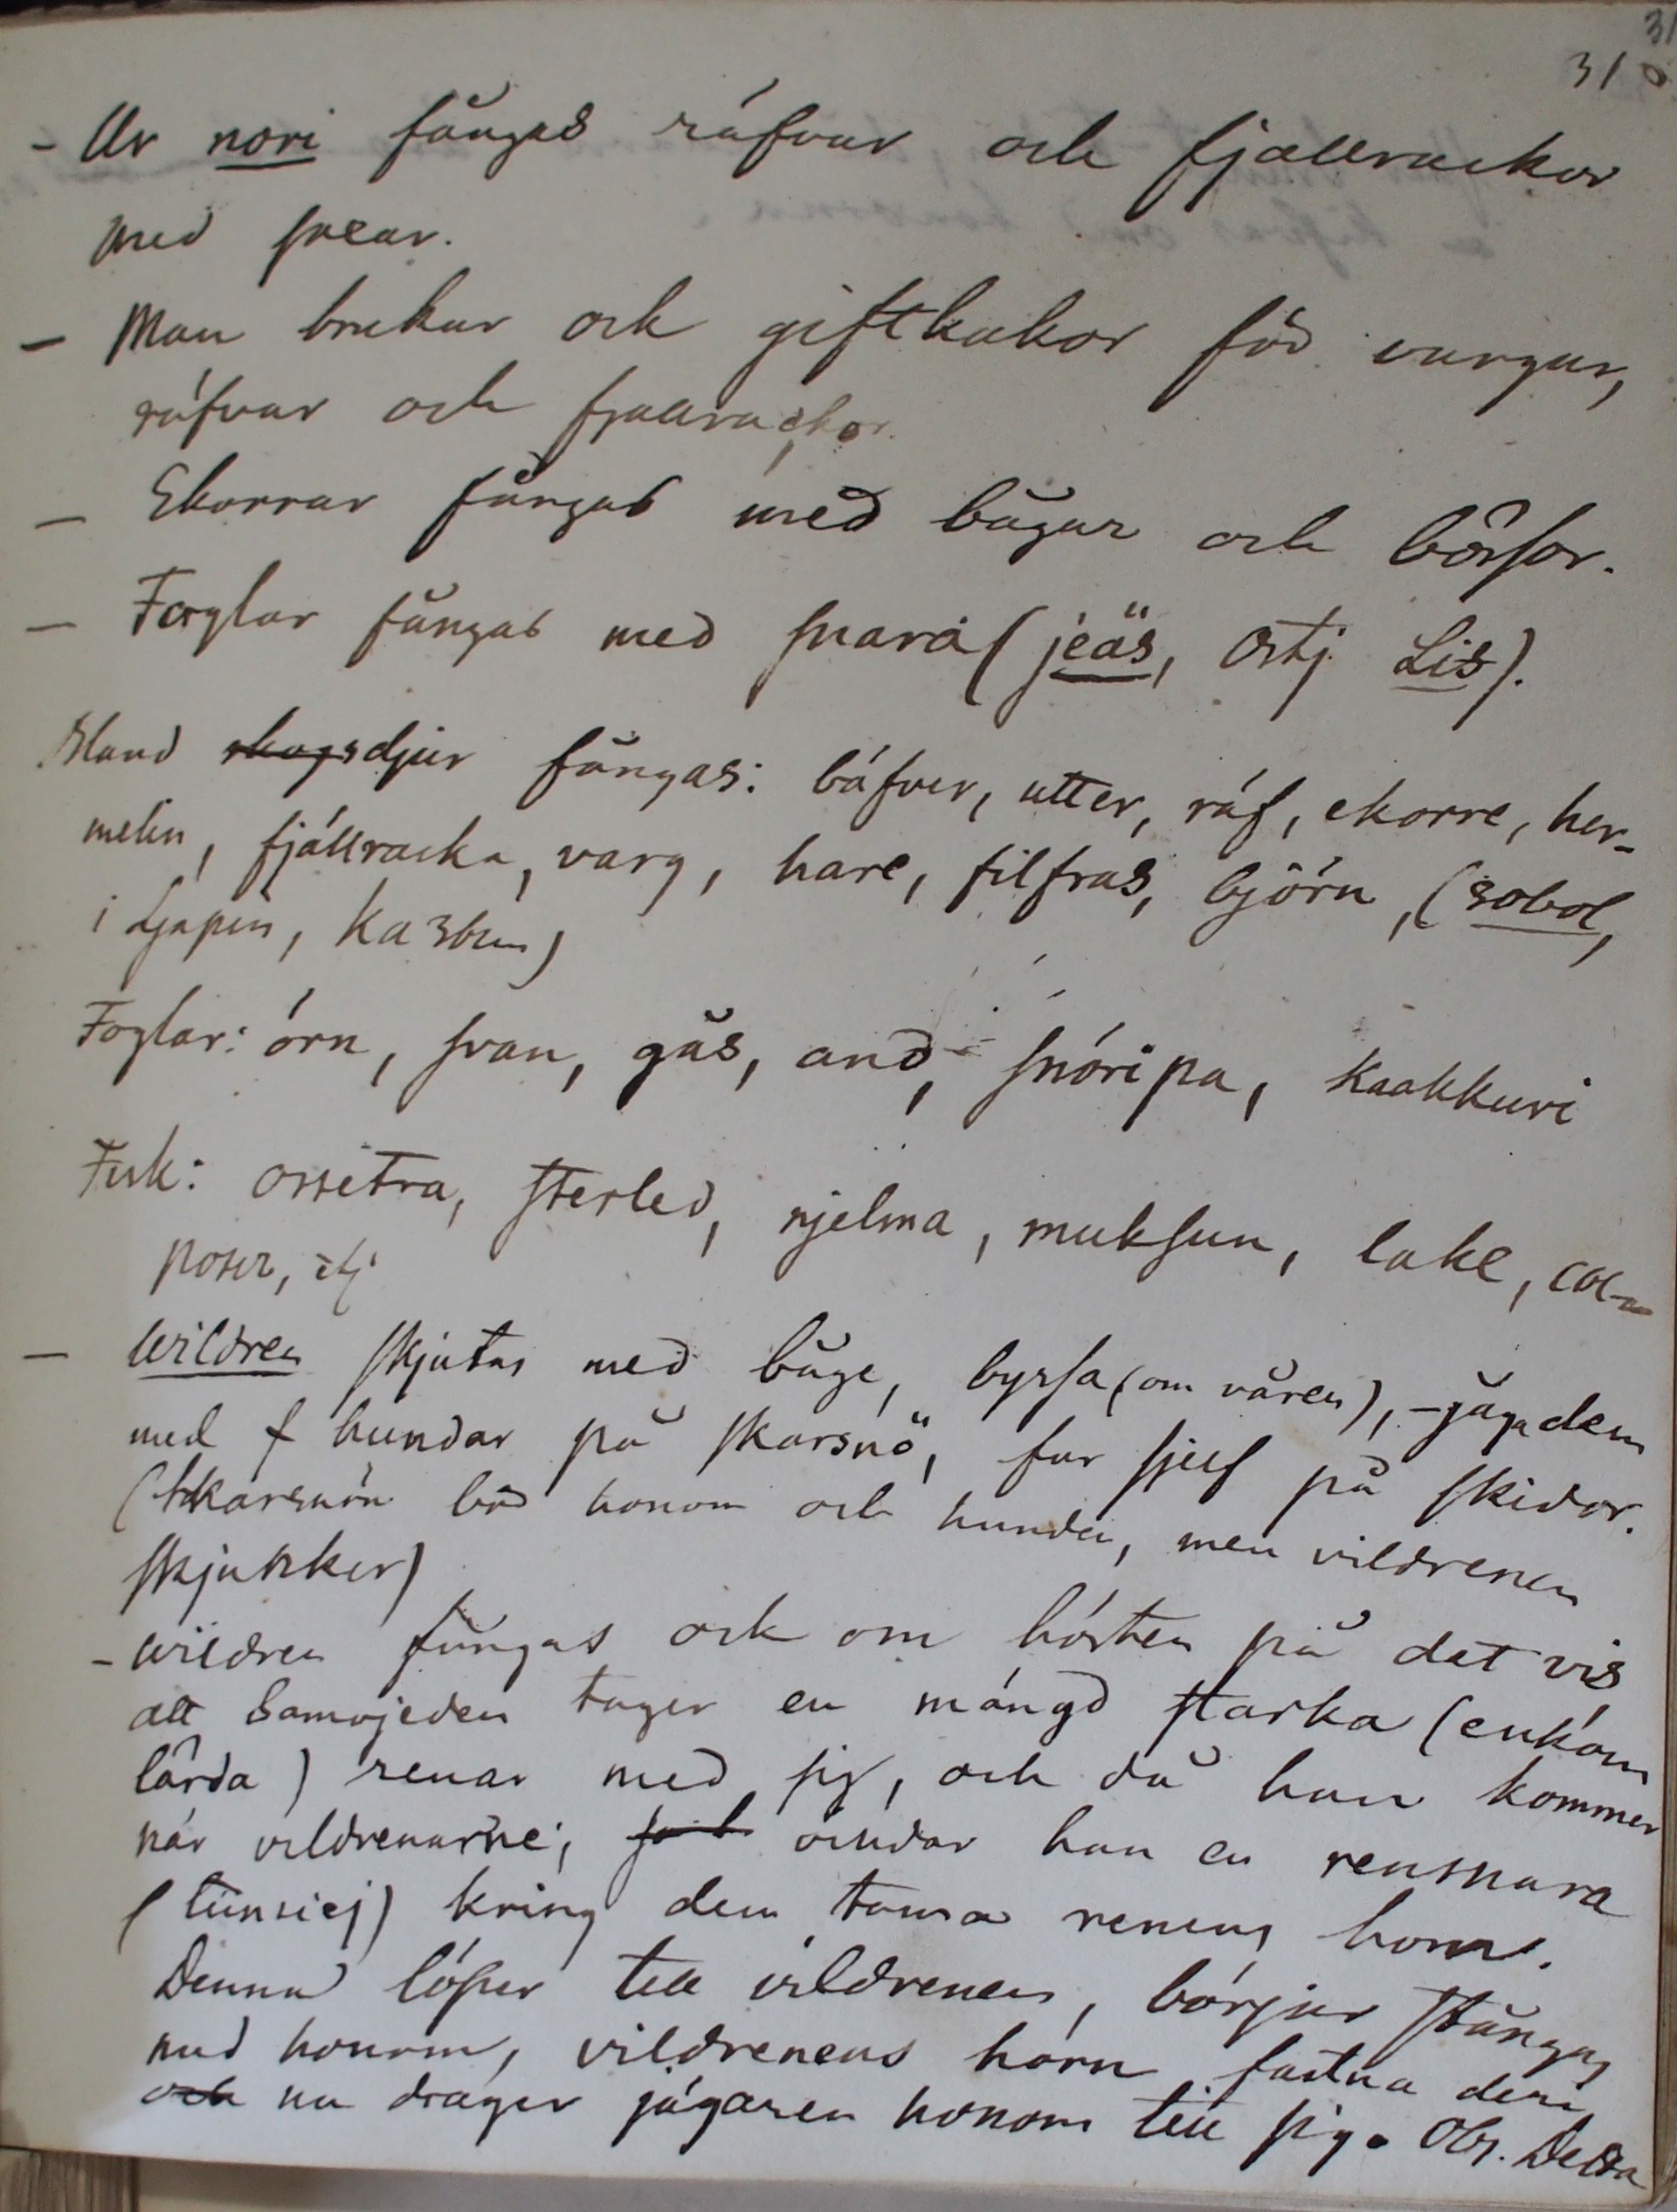 31
310
- Ur nori fångas räfvar och fjällrackor
med snear.
- Man brukar ock giftkakor för vargar,
räfvar och fjallrackor.
- Ekorrar fångas med bågar och bössor.
- Foglar fångas med snara (jeäs, Ostj. Lis).
Bland skogsdjur fångas: bäfver, utter, räf, ekorre, her-
melin, fjällracka, varg, hare, filfras, björn, (sobol,
i Ljapin, Kazym)
Foglar: örn, svan, gås, and, snöripa, kaakkuri
Fisk: ossetra, sterled, njelma, muksun, lake,
- Wildren skjutas med båge, byssa (om våren), - jaga dem
med hundar på skarsnö, far sjelf på skidor.
(Skarsnön bär honom och hunden, men vildrenen
sjunker)
- Wildren fångas ock om hösten på det vis
att Samojeden tager en mängd starka (enkom
lärda) renar med sig, och då han kommer
när vildrenarne, han en rensnara
(tünsiej) kring den tama renens horn.
Denna löper till vildrenen, börjar stångas
med honom, vildrenens horn fastna deri
och nu drager jägaren honom till sig. Obs. Detta